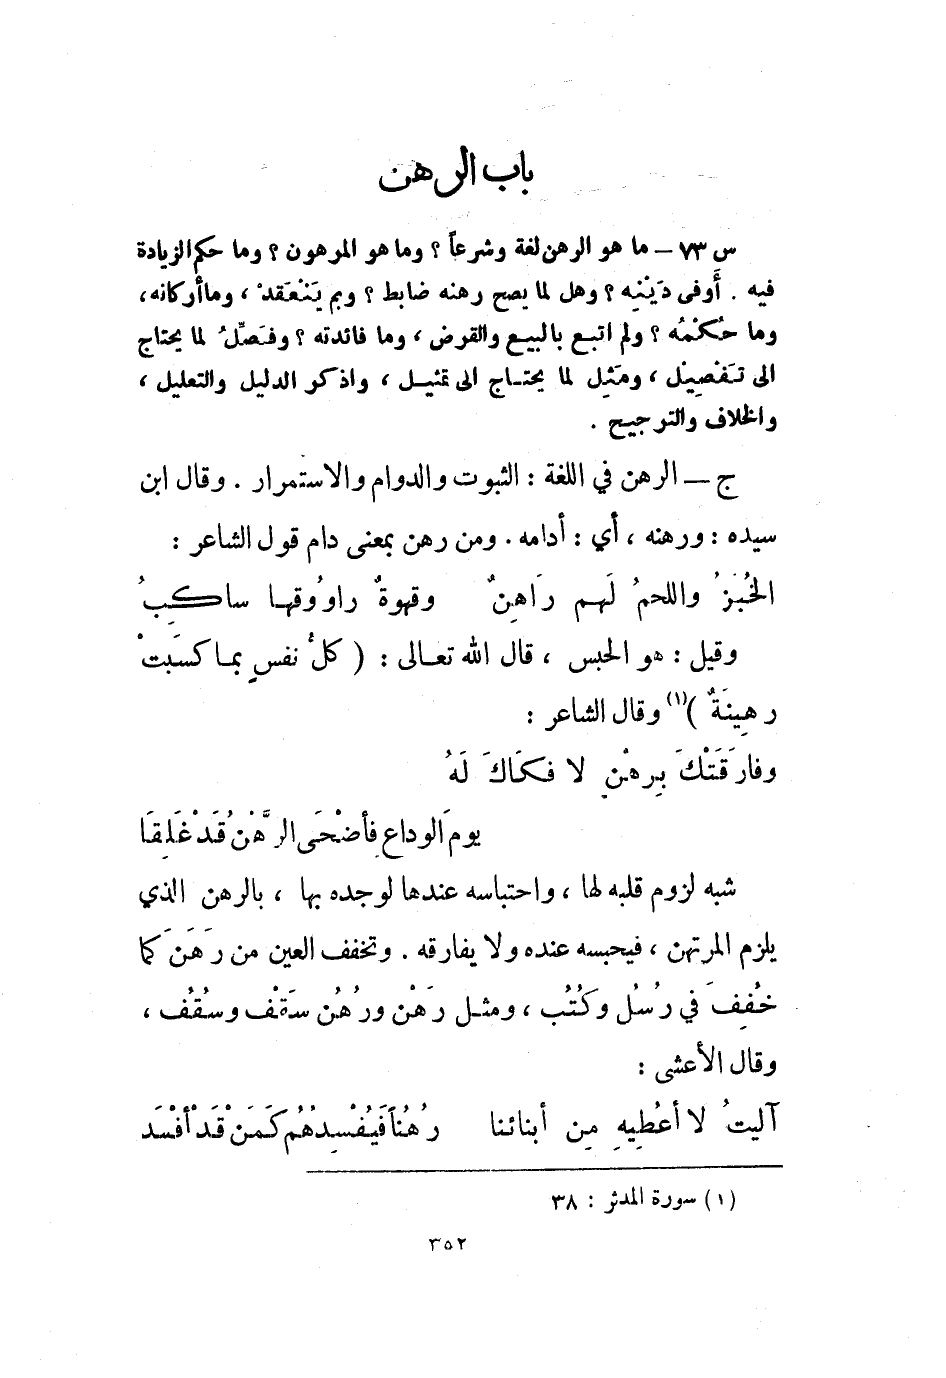 باب الرهن
س ٧٣ – ما هو الرهن لغة وشرعاً ؟ وما هو المرهون ؟ وما حكم الزيادة
فيه . أَوفى دَيْنِه ؟ وهل لما يصح رهنه ضابط ؟ وبم يَنْعَقد ، وما أركانه ،
وما حُكْمُه ؟ ولم اتبع بالبيع والقرض ، وما فائدته ؟ وفَصِّلْ لما يحتاج
الى تَفْصِيْل ، ومَثِل لما يحتاج الى تمثيل ، واذكر الدليل والتعليل ،
والخلاف والترجيح .
ج – الرهن في اللغة : الثبوت والدوام والاستمرار . وقال ابن
سيده : ورهنه ، أي : أدامه . ومن رهن بمعنى دام قول الشاعر :
الخُبْزُ واللحمُ لَهم رَاهِنٌ وقهوةٌ راوُوقها ساكِبُ
وقيل : هو الحبس ، قال الله تعالى : ( كلُ نفسٍ بما كسَبَتْ
رهِينَةٌ )(١) وقال الشاعر :
وفارَقَتْكَ بِرهْنٍ لا فكَاكَ لَهُ
يومَ الوداعِ فأضْحَى الرَّهْنُ قَدْ غَلِقَا
شبه لزوم قلبه لها ، واحتباسه عندها لوجده بها ، بالرهن الذي
يلزم المرتهن ، فيحبسه عنده ولا يفارقه . وتخفف العين من رَهَنَ كما
خُفِفَ في رُسُل وكُتُب ، ومثل رَهْن ورُهُن سَقْف وسُقُف ،
وقال الأعشى :
آليتُ لا أعُطِيهِ مِن أبنائنا رُهُناً فَيُفْسِدُهُم كَمَنْ قَدْ أفْسَدَ
(١) سورة المدثر : ٣٨
٣٥٢